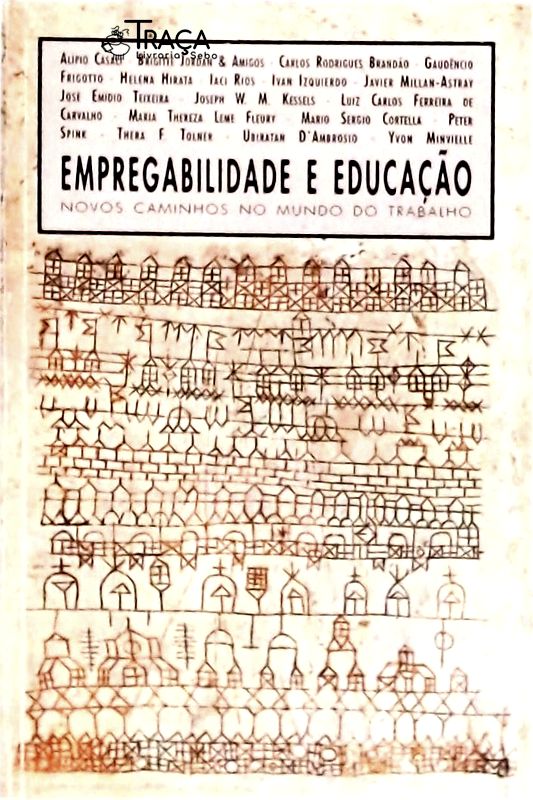 TRAÇA
Livraria Sebo
ALIPIO CASALI · BRIGITTE JORDAN & AMIGOS · CARLOS RODRIGUES BRANDÃO · GAUDÊNCIO
FRIGOTTO · HELENA HIRATA · IACI RIOS · IVAN IZQUIERDO · JAVIER MILLAN-ASTRAY
JOSÉ EMIDIO TEIXEIRA · JOSEPH W. M. KESSELS · LUIZ CARLOS FERREIRA DE
CARVALHO · MARIA THEREZA LEME FLEURY · MARIO SERGIO CORTELLA · PETER
SPINK · THERA F. TOLNER · UBIRATAN D'AMBROSIO · YVON MINVIELLE
EMPREGABILIDADE E EDUCAÇÃO
NOVOS CAMINHOS NO MUNDO DO TRABALHO